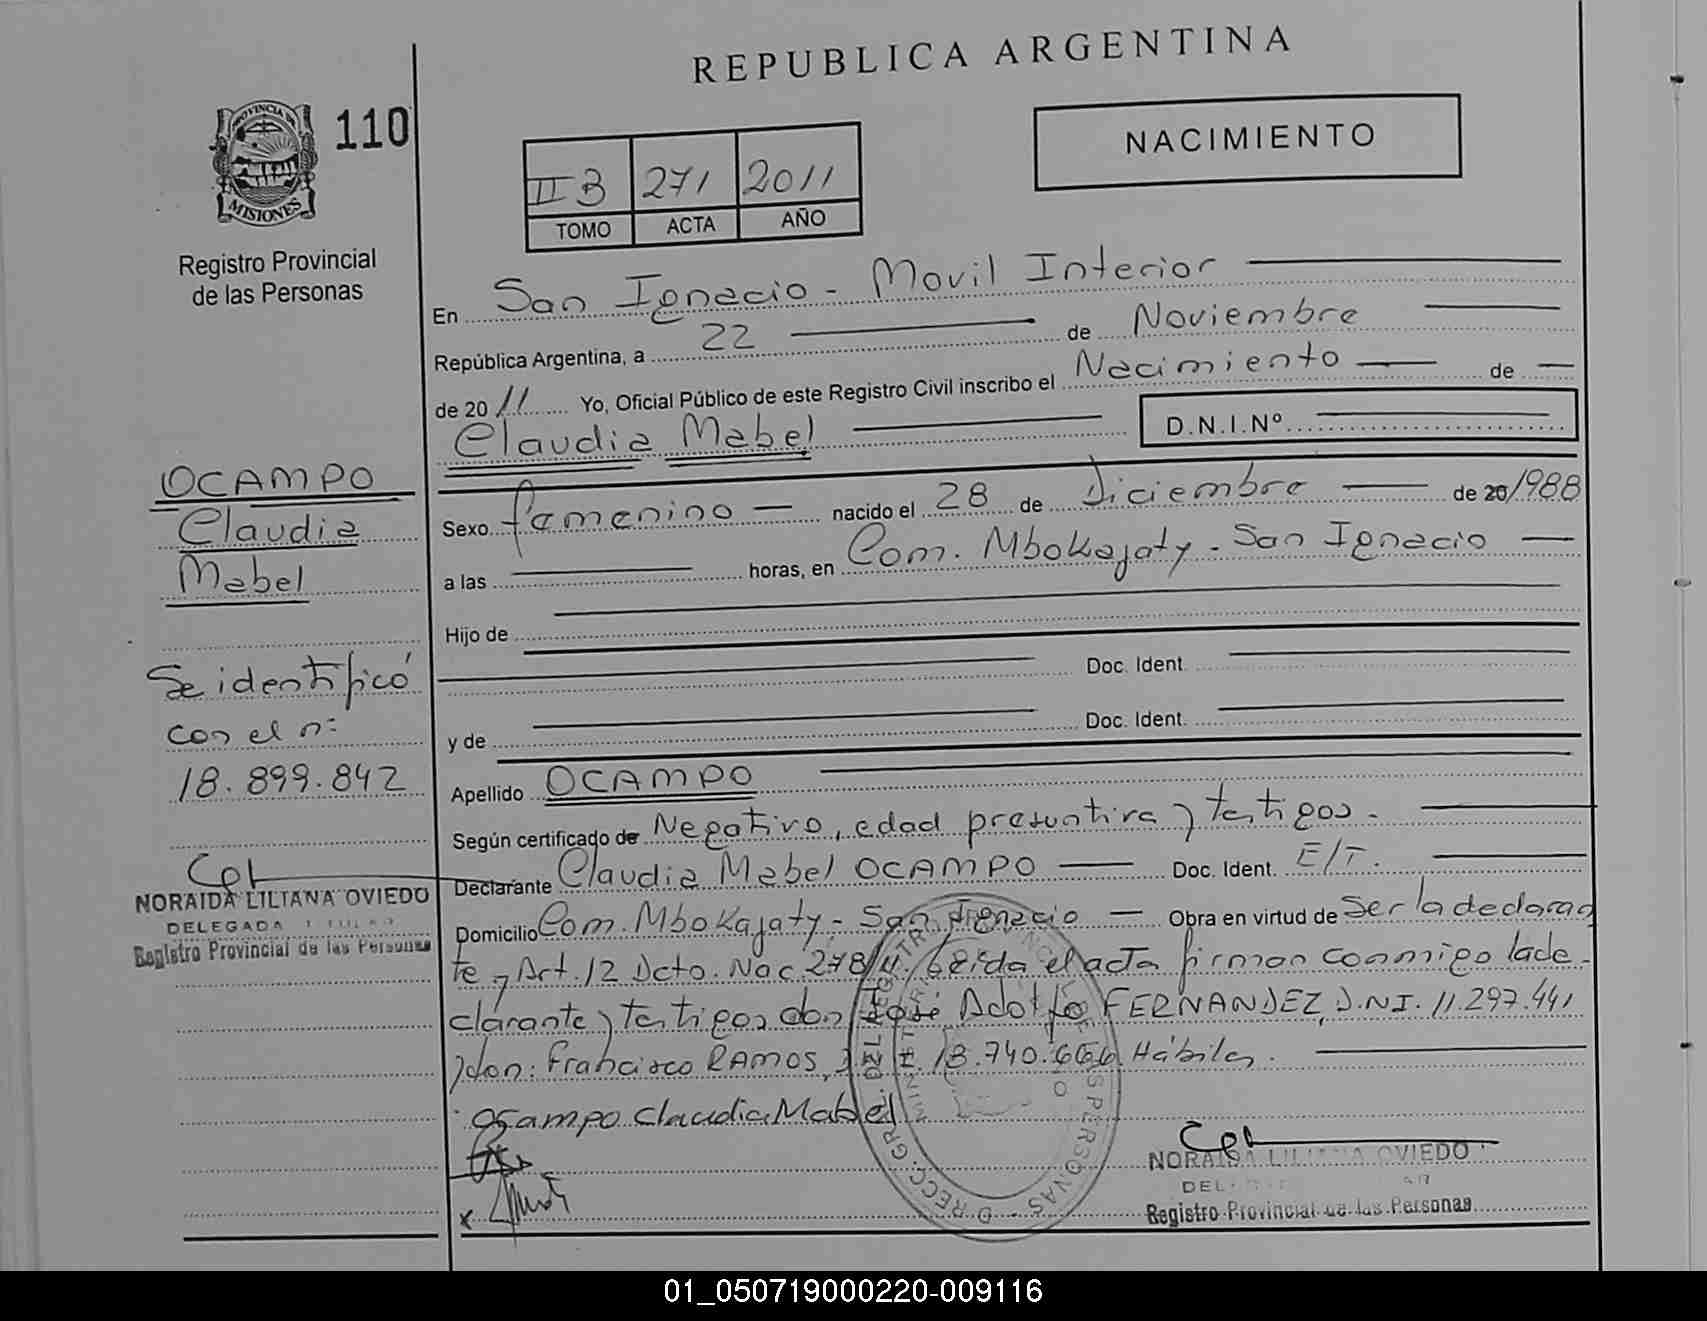 REPUBLICA ARGENTINA
PROVINCIA DE
MISIONES
110
Registro Provincial
de las Personas
II B 271 2011
TOMO ACTA AÑO
NACIMIENTO
En San Ignacio - Movil Interior
República Argentina, a 22 de Noviembre
de 20 11 Yo, Oficial Público de este Registro Civil inscribo el Nacimiento de
Claudia Mabel D.N.I.Nº
Sexo femenino nacido el 28 de Diciembre de 20 1988
a las horas, en Com. Mbokajaty - San Ignacio
Hijo de
Doc. Ident.
y de Doc. Ident.
Apellido OCAMPO
Según certificado de Negativo, edad presuntiva y testigos.
Declarante Claudia Mabel OCAMPO Doc. Ident. E/T.
Domicilio Com. Mbokajaty - San Ignacio Obra en virtud de Ser la declaran
te y Art. 12 Dcto. Nac 278/11. Leida el acta firman conmigo la de-
clarante y testigos don José Adolfo FERNANDEZ, D.N.I. 11.297.441
y don: Francisco RAMOS, 18.740.666 Hábiles.
Ocampo Claudia Mabel
x
NORAIDA LILIANA OVIEDO
Registro Provincial de las Personas
OCAMPO
Claudia
Mabel
Se identificó
con el nº
18.899.842
NORAIDA LILIANA OVIEDO
DELEGADA TITULAR
Registro Provincial de las Personas
01_050719000220-009116